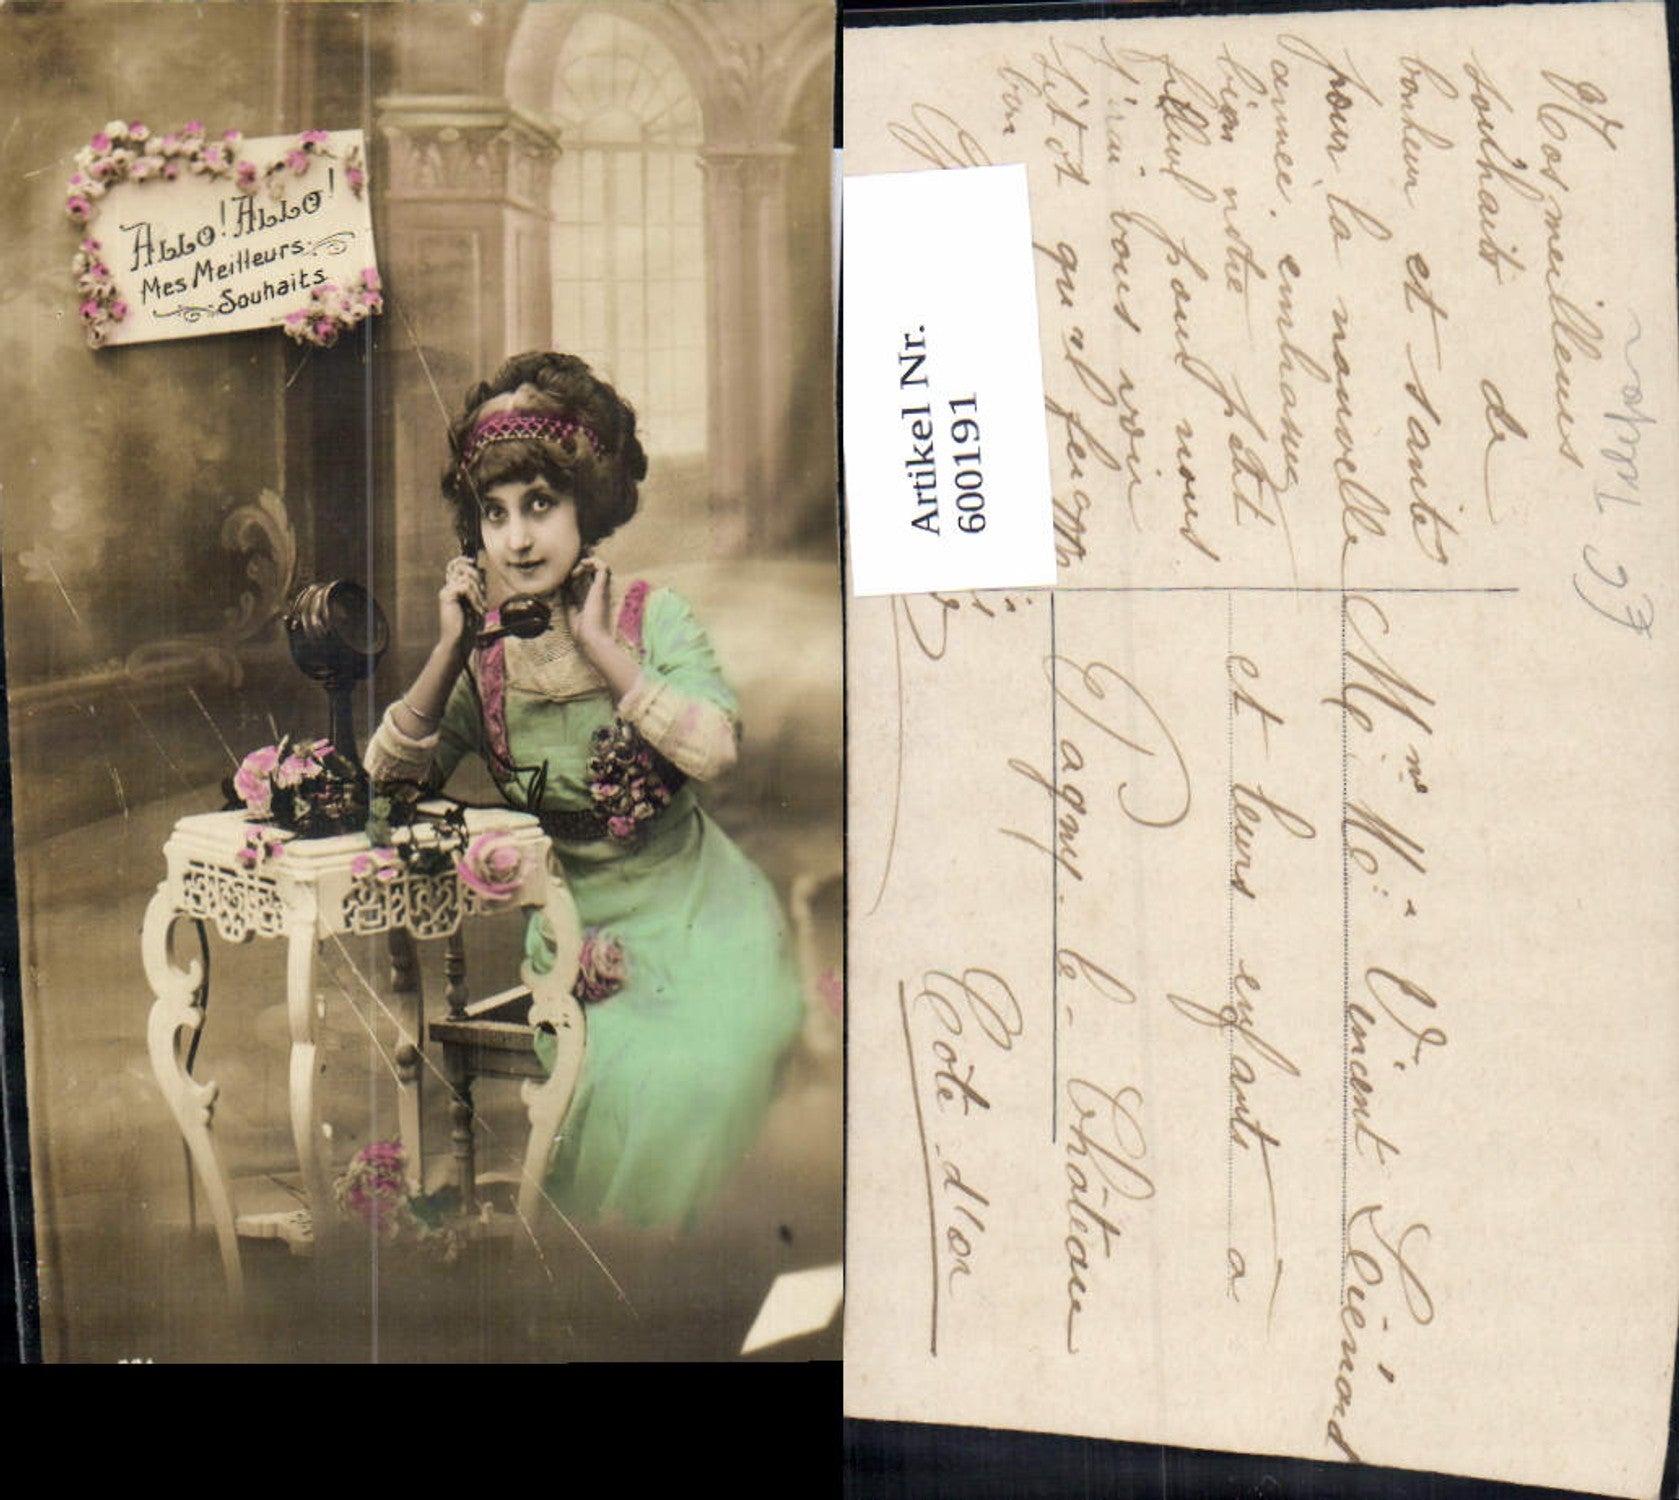 Allo! Allo!
Mes Meilleurs
Souhaits
Nos meilleurs
souhaits de
bonheur et santé
pour la nouvelle
année. embrasse
bien notre petit
filleul pour nous.
J'irai vous voir
sitôt qu'il fera
bon
Artikel Nr.
600191
Mr Me Vincent Liénard
et leurs enfants à
Pagny-le-Château
Côte d'or